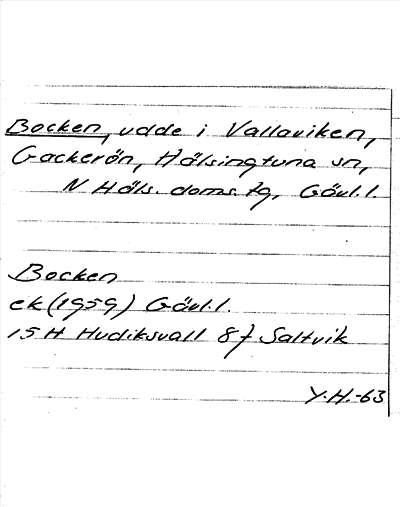 Bocken, udde i Vallaviken,
Gackerön, Hälsingtuna sn,
N Häls. doms. tg, Gävl.l.
Bocken
ek (1959) Gävl.l.
15 H Hudiksvall 8 f Saltvik
Y.H.-63